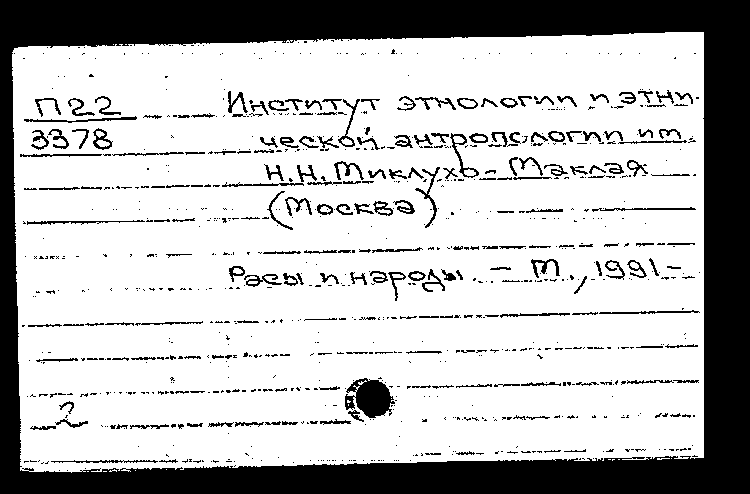 П22 Институт этнологии и этни-
3378 ческой антропологии им.
Н.Н. Миклухо-Маклая
(Москва).
Расы и народы. - М., 1991-
2